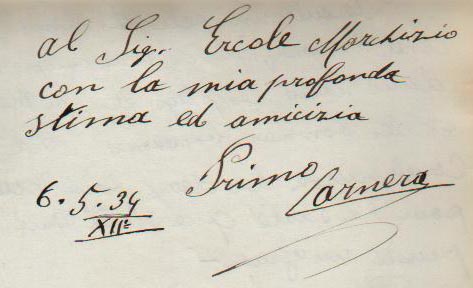 al Sig. Ercole Marchisio
con la mia profonda
stima ed amicizia
Primo
Carnera
6. 5. 34
XIIº